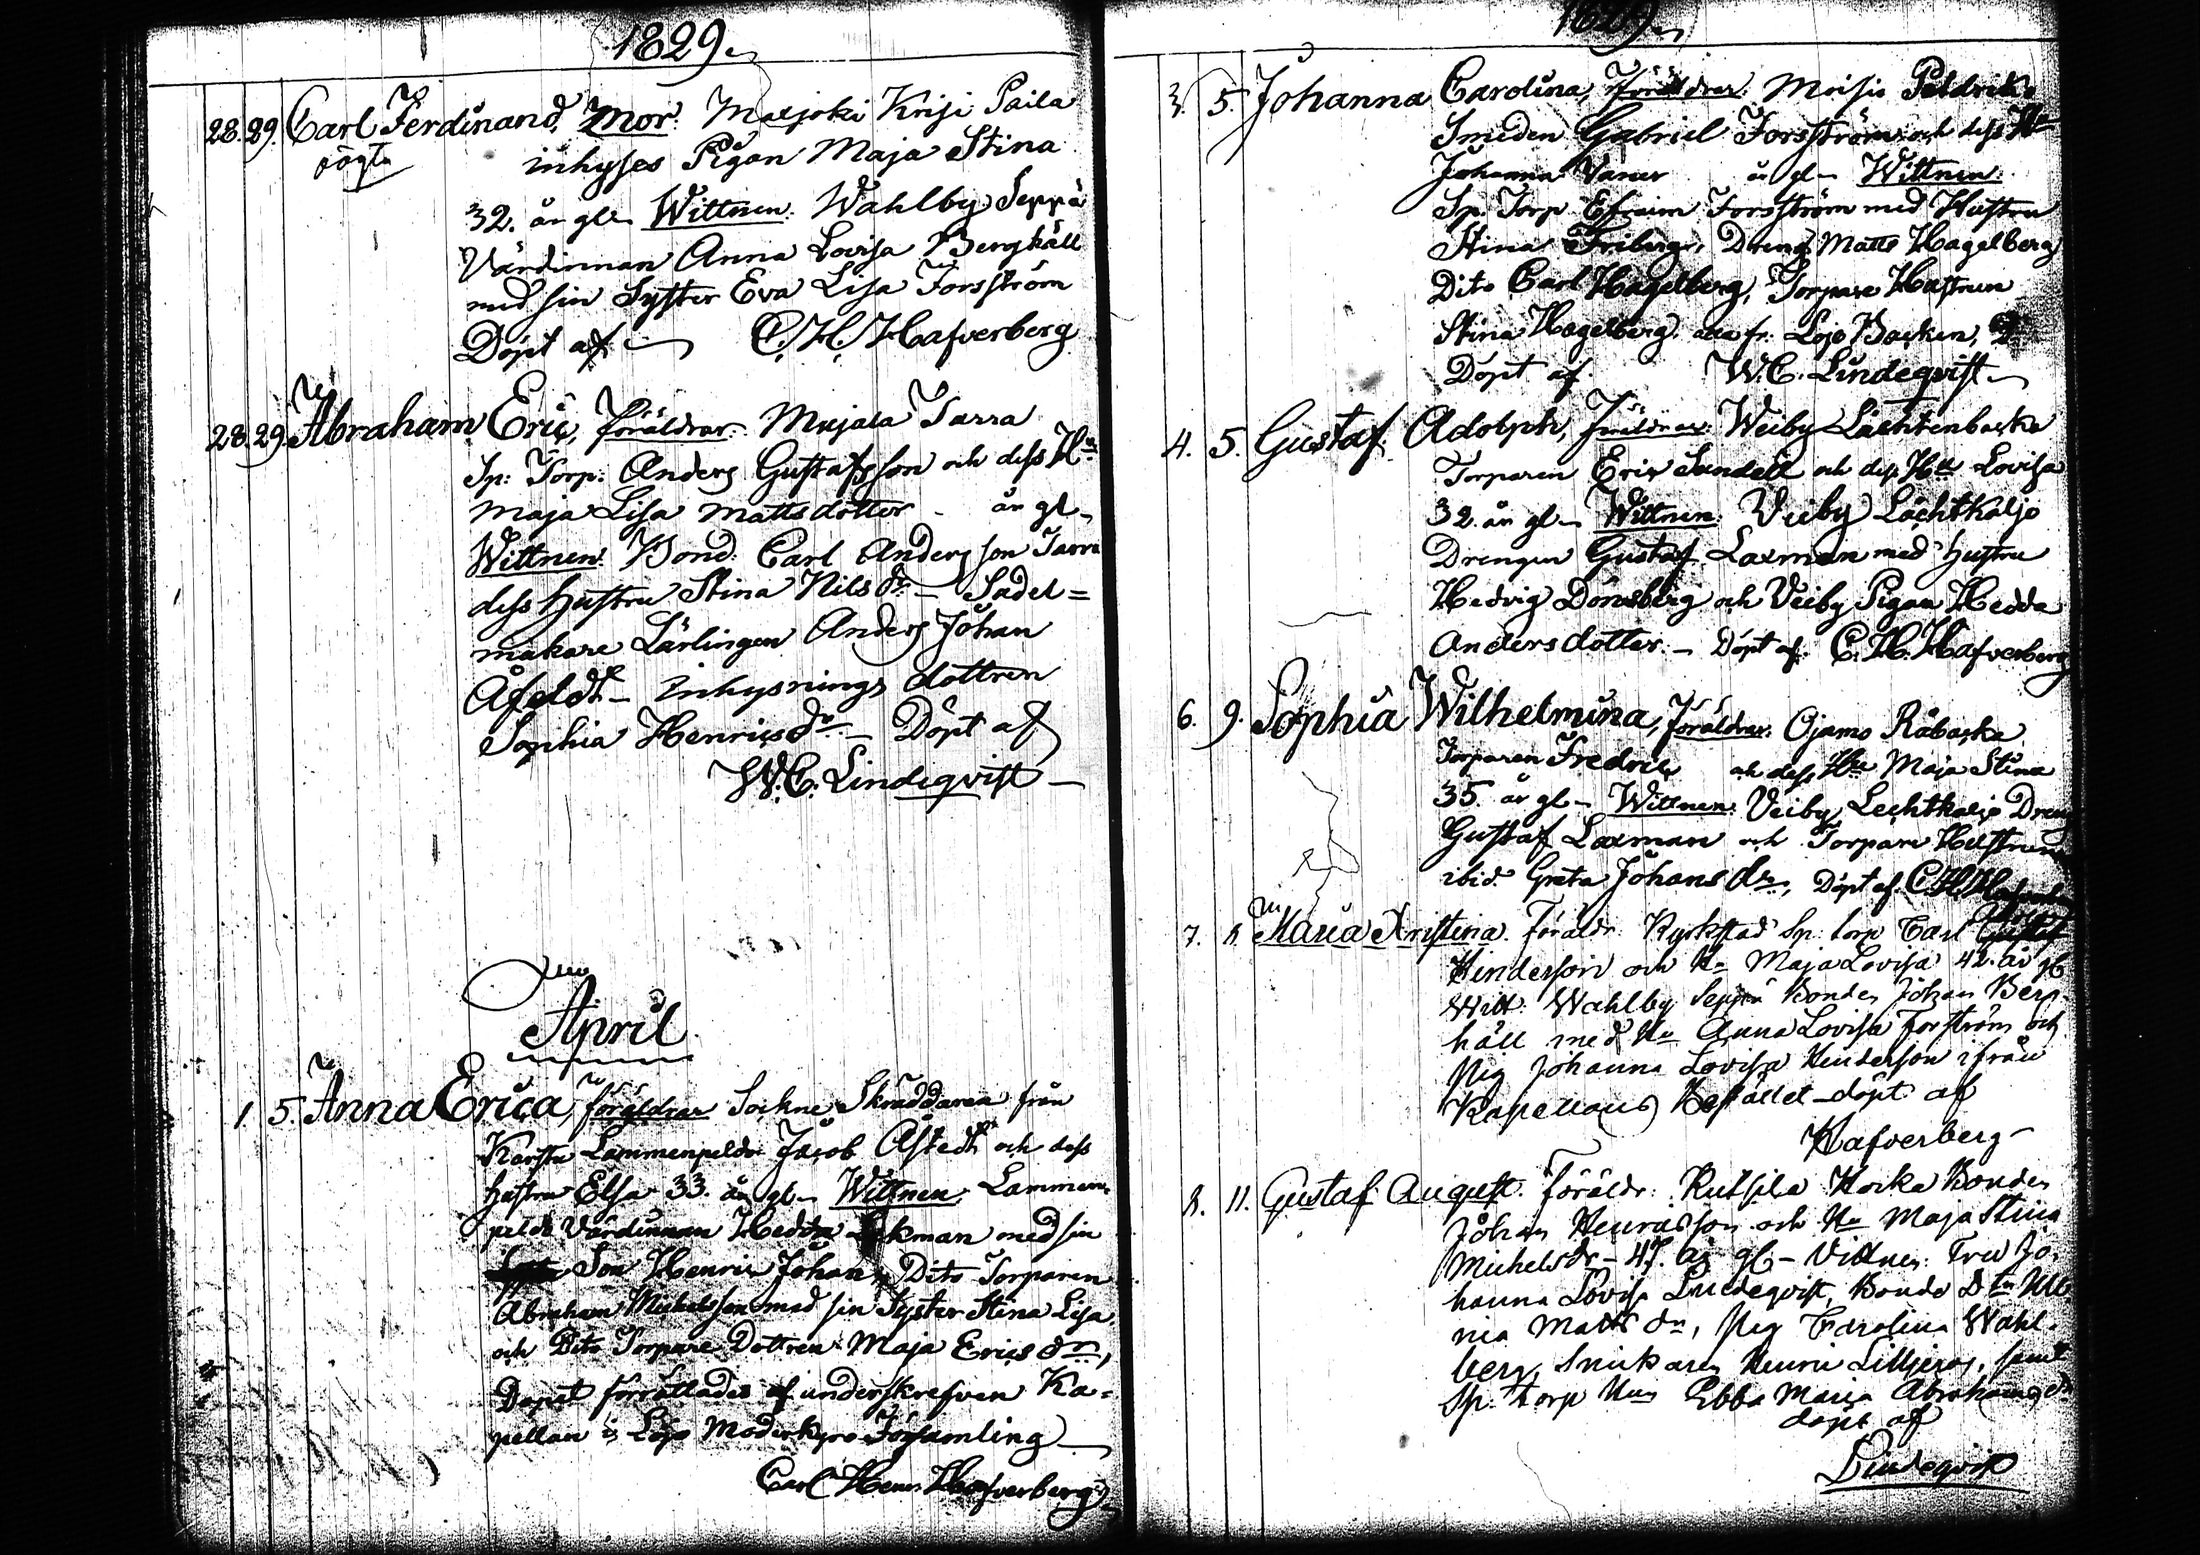 1829.
28. 29. Carl Ferdinand, Mor: Maxjoki Krisi Paila
oögta inhyses Pigan Maja Stina
32. år gl. Wittnen. Wahlby Seppä
Värdinnan Anna Lovisa Berghäll
med sin Syster Eva Lisa Forsström
Döpt af C. H. Hafverberg
28. 29. Abraham Eric, föräldrar: Sarra
Sp: Torp: Anders Gustafsson och dess Hu
Maja Lisa Mattsdotter - år gl.
Wittnen: Bond: Carl Andersson Sarra
dess Hustru Stina Nils dr - Sadel=
makare Lärlingen Anders Johan
Åfeldt - Inhysnings dottren
Sophia Henrics dr - Döpt af
W. C. Lindeqvist -
April
1. 5. Anna Erica, föräldrar Sockne Skräddaren från
Karstu Lammenpeldo Jacob Åstedt och dess
hustru Elsa 33. år gl. Wittnen: Lammen
peldo Värdinnan Hedda Ekman med sin
Son Henric Johan, Dito Torparen
Abraham Michelsson med sin Syster Stina Lisa
och Dito Torpare Dottren Maja Erics dr,
Dopet förrättades af underskrefven Ka=
pellan i Lojo Moderkyrko Församling
Carl Henr. Hafverberg
1829.
3. 5. Johanna Carolina, Föräldrar: Moisio
Smeden Gabriel Forsström och dess Hu
Johanna år gl. Wittnen
Sp. Torp Efraim Forsström med Hustru
Stina Friberg, Dreng Matts Hagelberg
Dito Carl Hagelberg, Torpare Hustrun
Stina Hagelberg. alla fr. Lojo Backen,
Döpt af W. C. Lindeqvist -
4. 5. Gustaf Adolph, Föräldrar: Weiby Lächtenbacka
Torparen Eric Sundell och dess Hu Lovisa
32. år gl. Wittnen: Veiby Lächtkaljo
Drengen Gustaf Laxman med hustru
Hedvig Dönsberg och Veiby Pigan Hedda
Andersdotter. - Döpt af. C. H. Hafverberg
6. 9. Sophia Wilhelmina, föräldrar. Ojamo Råbacka
Torparen Fredric och dess Hu Maja Stina
35. år gl. - Wittnen: Veiby Lechtkaljo Dreng
Gustaf Laxman och Torpare Hustrun
ibid. Greta Johans dr, Döpt af.
7. Maria Kristina. Föräldr. Kyrkstad Sp. torp Carl
Hindersson och Hu Maja Lovisa 42. år gl
Witt: Wahlby Seppä Bonden Johan Berg-
häll med Hu Anna Lovisa Forsström och
Pig Johanna Lovisa Hendersson ifrån
Kapellans Bostället - döpt af
Hafverberg -
8. 11. Gustaf August. föräldr: Rutsila Bonden
Johan Henricsson och Hu Maja Stina
Michelsdr - 47. år gl - Vittnen: Fru Jo-
hanna Lovisa Lindeqvist, Bonde Dtr Ul
rica Matts dr, Pig Carolina Wahl-
berg, Snickaren Henric samt
Sp. torp Hun Ebba Maria Abrahams dr
döpt af
Lindeqvist